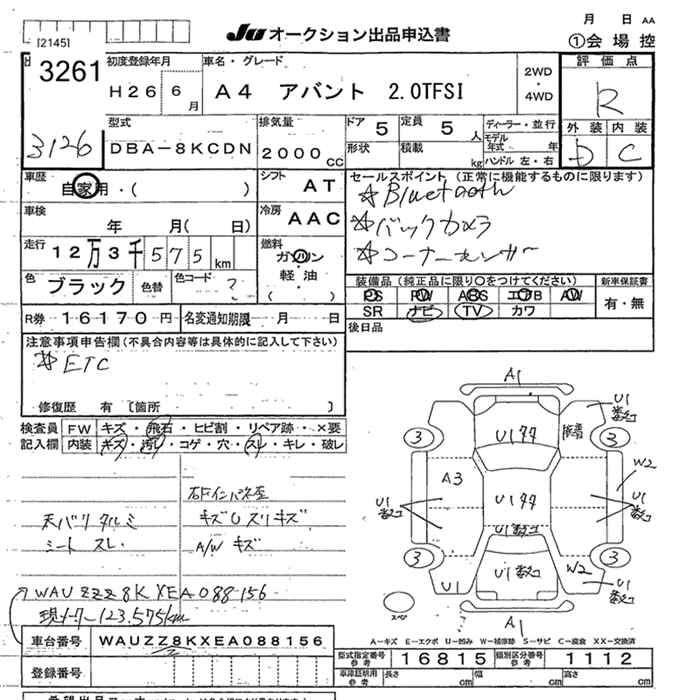 月 日 AA
[2145]
JU オークション出品申込書
①会場控
3261
初度登録年月
車名・グレード
2WD ・ 4WD
評価点
H26 6月
A4 アバント 2.0TFSI
R
3126
型式
排気量
ドア 5
定員 5人
ディーラー・並行
外装 内装
DBA-8KCDN
2000cc
形状
積載 kg
モデル年式 年
ハンドル 左・右
D C
車歴
自家用・( )
シフト AT
セールスポイント (正常に機能するものに限ります)
☆Bluetooth
車検
年 月( 日)
冷房 AAC
☆バックカメラ
走行
12万3千575km
燃料
ガソリン
軽油
( )
☆コーナーセンサー
色 ブラック
色替
色コード ?
装備品 (純正品に限り○をつけてください)
新車保証書
PS PW ABS エアB AW
有・無
SR ナビ TV カワ
R券 16170円
名変通知期限 月 日
後日品
注意事項申告欄 (不具合内容等は具体的に記入して下さい)
☆ETC
修復歴 有 [箇所 ]
検査員記入欄
FW キズ・飛石・ヒビ割・リペア跡・×要
内装 キズ・汚れ・コゲ・穴・スレ・キレ・破レ
天バリ タルミ
シート スレ
右Fインパネ歪
キズUスリキズ
A/W キズ
WAUZZZ8KXEA088156
現メーター123,575km
A1
U1
U1
3 3
A3
W2
U1
U1
U1
3 3
W2
U1
U1
U1
スペア
A1
A-キズ E-エクボ U-凹み W-補修跡 S-サビ C-腐食 XX-交換済
車台番号 WAUZZ8KXEA088156
型式指定番号 参考 16815
類別区分番号 参考 1112
登録番号
車庫証明用 参考
長さ cm
幅 cm
高さ cm